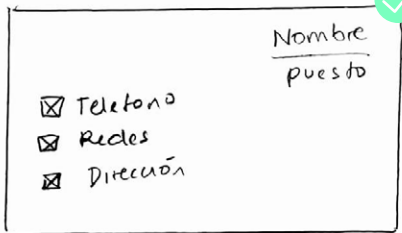 Nombre
puesto
Telefono
Redes
Dirección